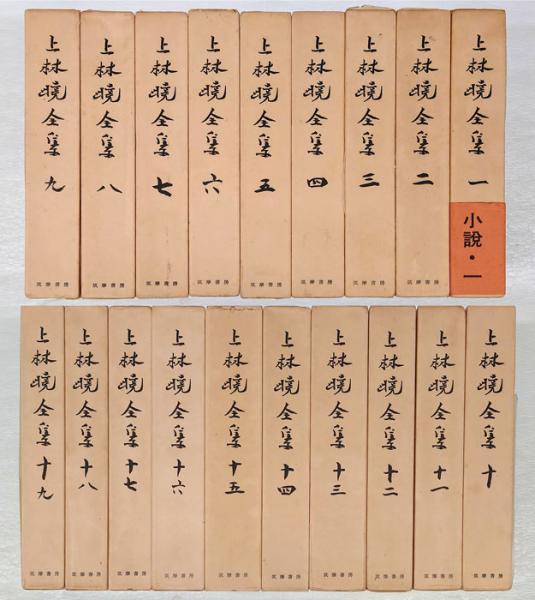 上林曉全集 一
小説・一
上林曉全集 二
筑摩書房
上林曉全集 三
筑摩書房
上林曉全集 四
筑摩書房
上林曉全集 五
筑摩書房
上林曉全集 六
筑摩書房
上林曉全集 七
筑摩書房
上林曉全集 八
筑摩書房
上林曉全集 九
筑摩書房
上林曉全集 十
筑摩書房
上林曉全集 十一
筑摩書房
上林曉全集 十二
筑摩書房
上林曉全集 十三
筑摩書房
上林曉全集 十四
筑摩書房
上林曉全集 十五
筑摩書房
上林曉全集 十六
筑摩書房
上林曉全集 十七
筑摩書房
上林曉全集 十八
筑摩書房
上林曉全集 十九
筑摩書房